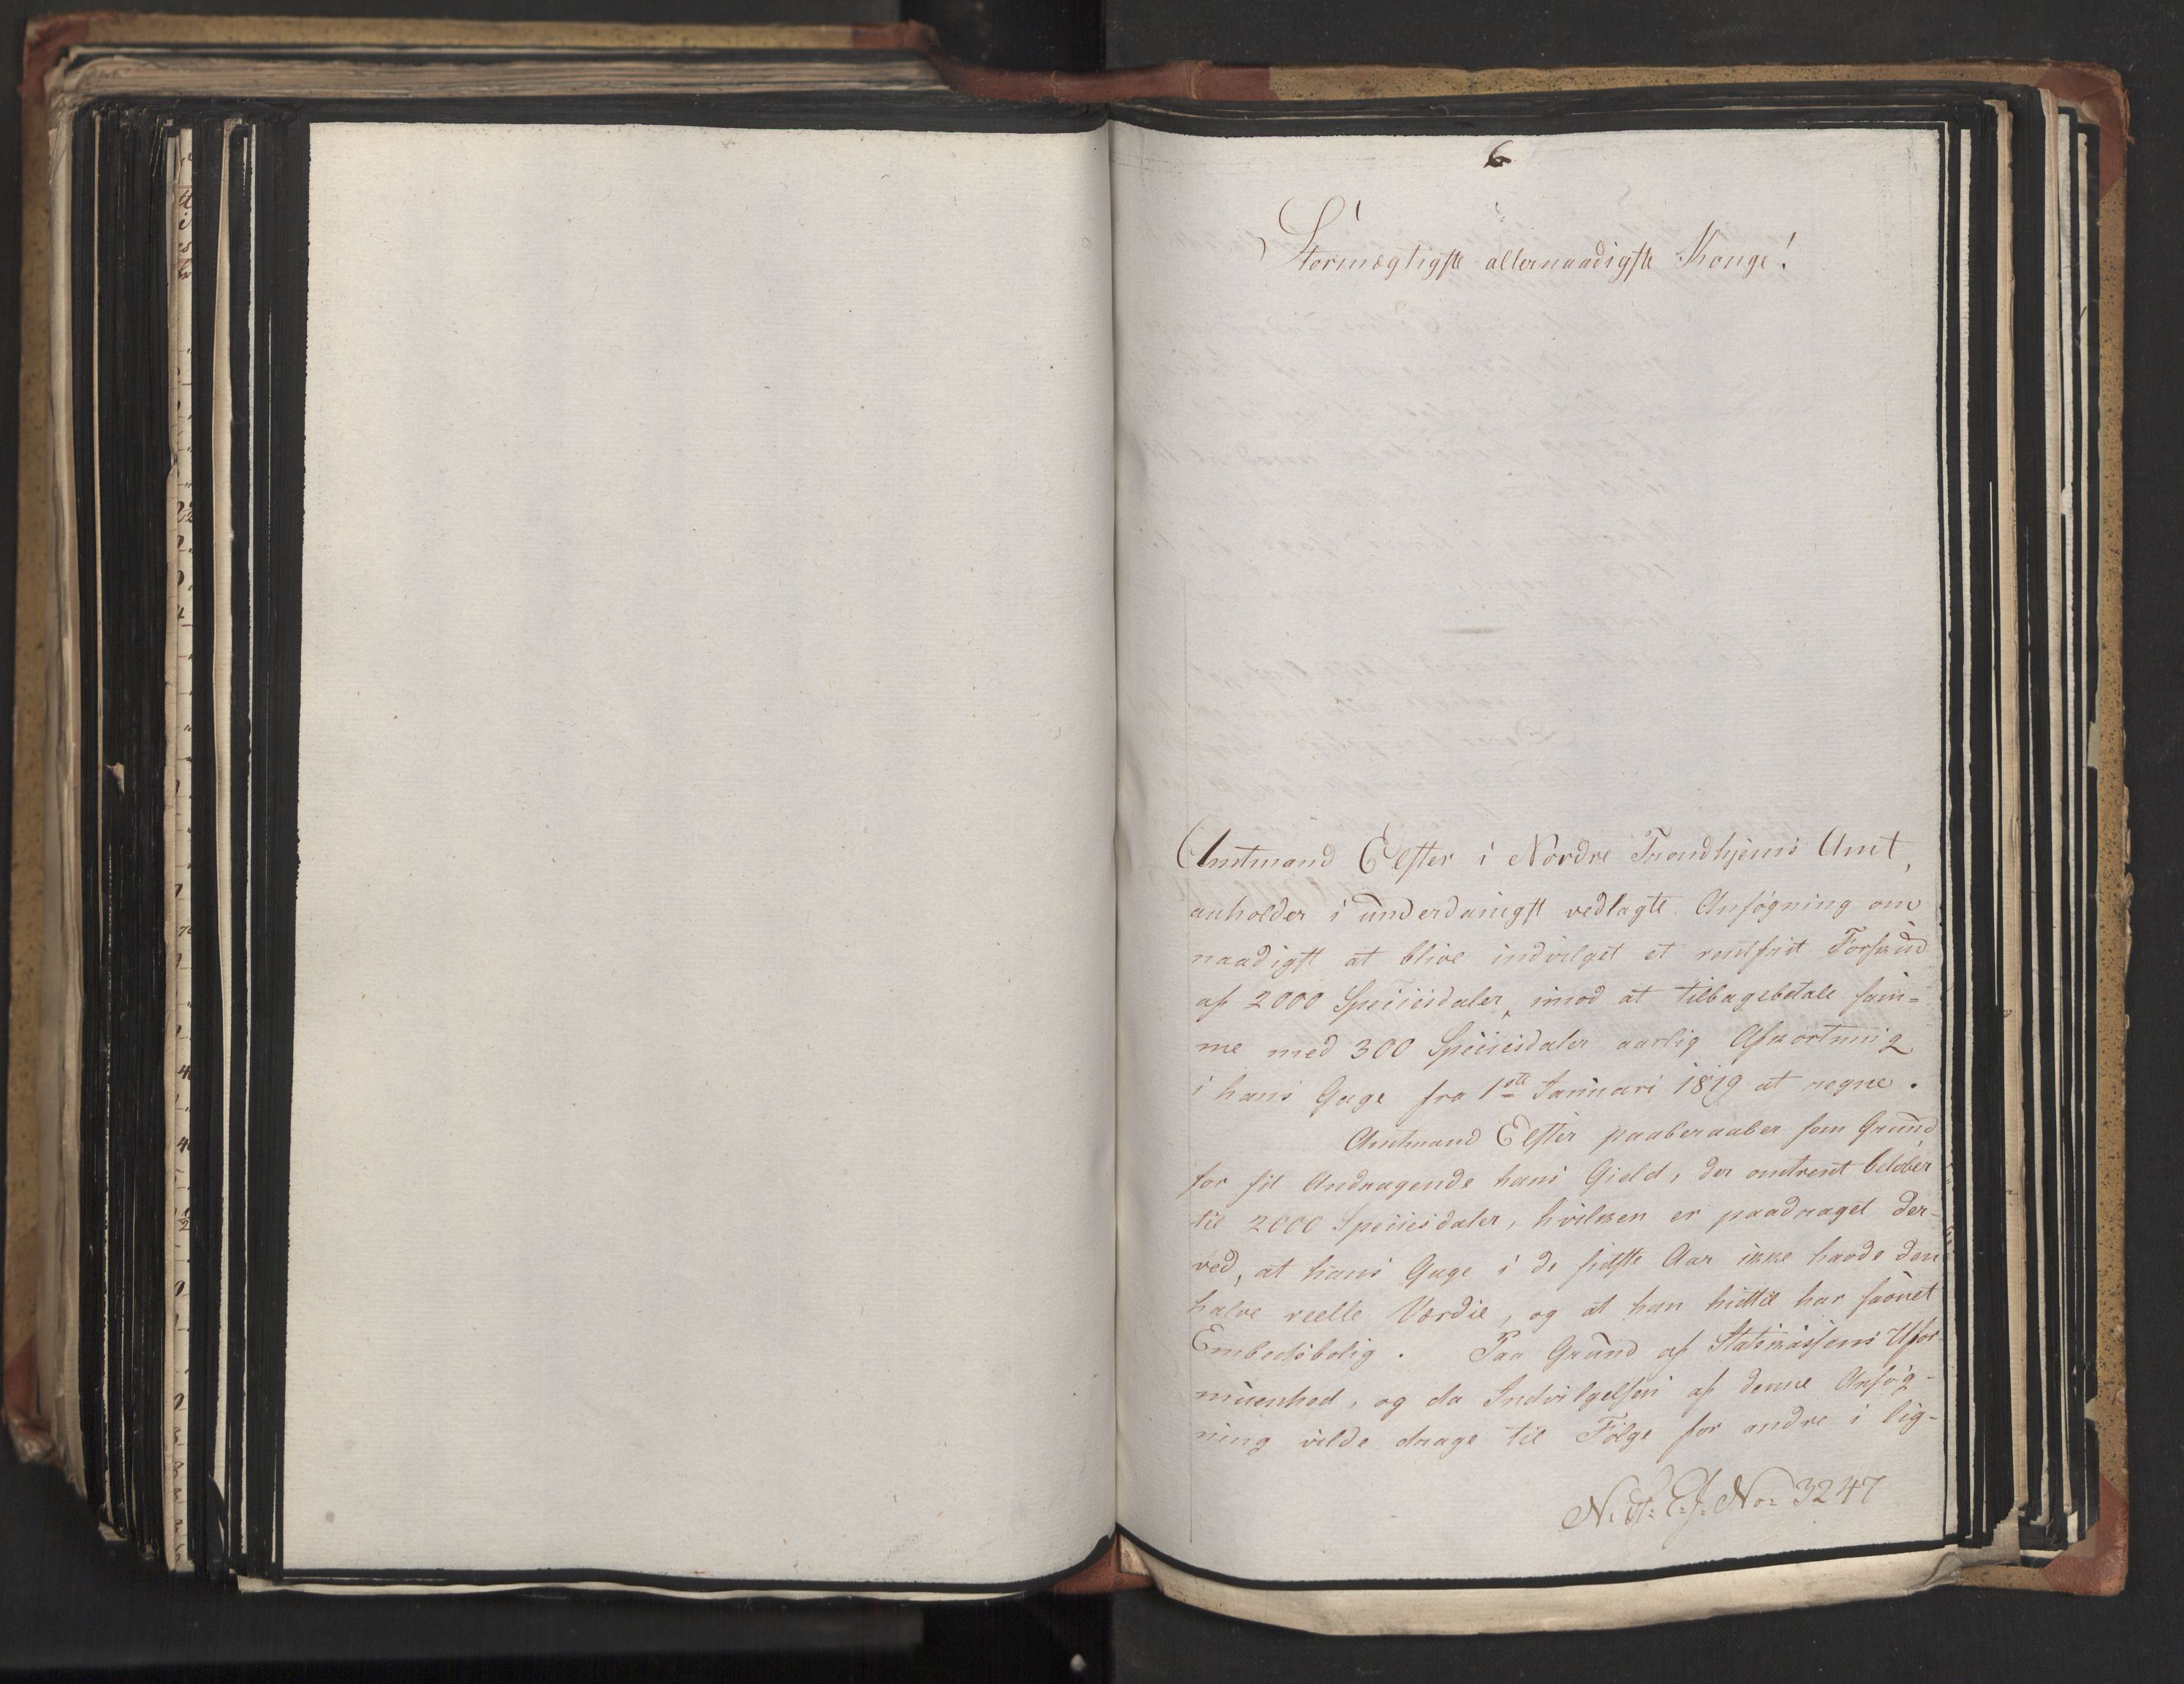 6
Stormægtigste allernaadigste Konge!
Amtmand Elster i Nordre Trondhjems Amt,
anholder i underdanigst vedlagte Ansøgning om
naadigst at blive indvilget et rentfrit Forskud
af 2000 Speciesdaler, imod at tilbagebetale sam=
me med 300 Speciesdaler aarlig Afkortning
i hans Gage fra 1ste Januari 1819 at regne.
Amtmand Elster paaberaaber som Grund
for sit Andragende hans Gield, der omtrent beløber
til 2000 Speciesdaler, hvilken er paadraget der-
ved, at hans Gage i de sidste Aar ikke havde den
halve reelle Værdie, og at han hidtil har savnet
Embedsbolig. Paa Grund af Statskassens Ufor
muenhed, og da Indvilgelsen af denne Ansøg-
ning vilde drage til Følge for andre i lig-
No: 3247